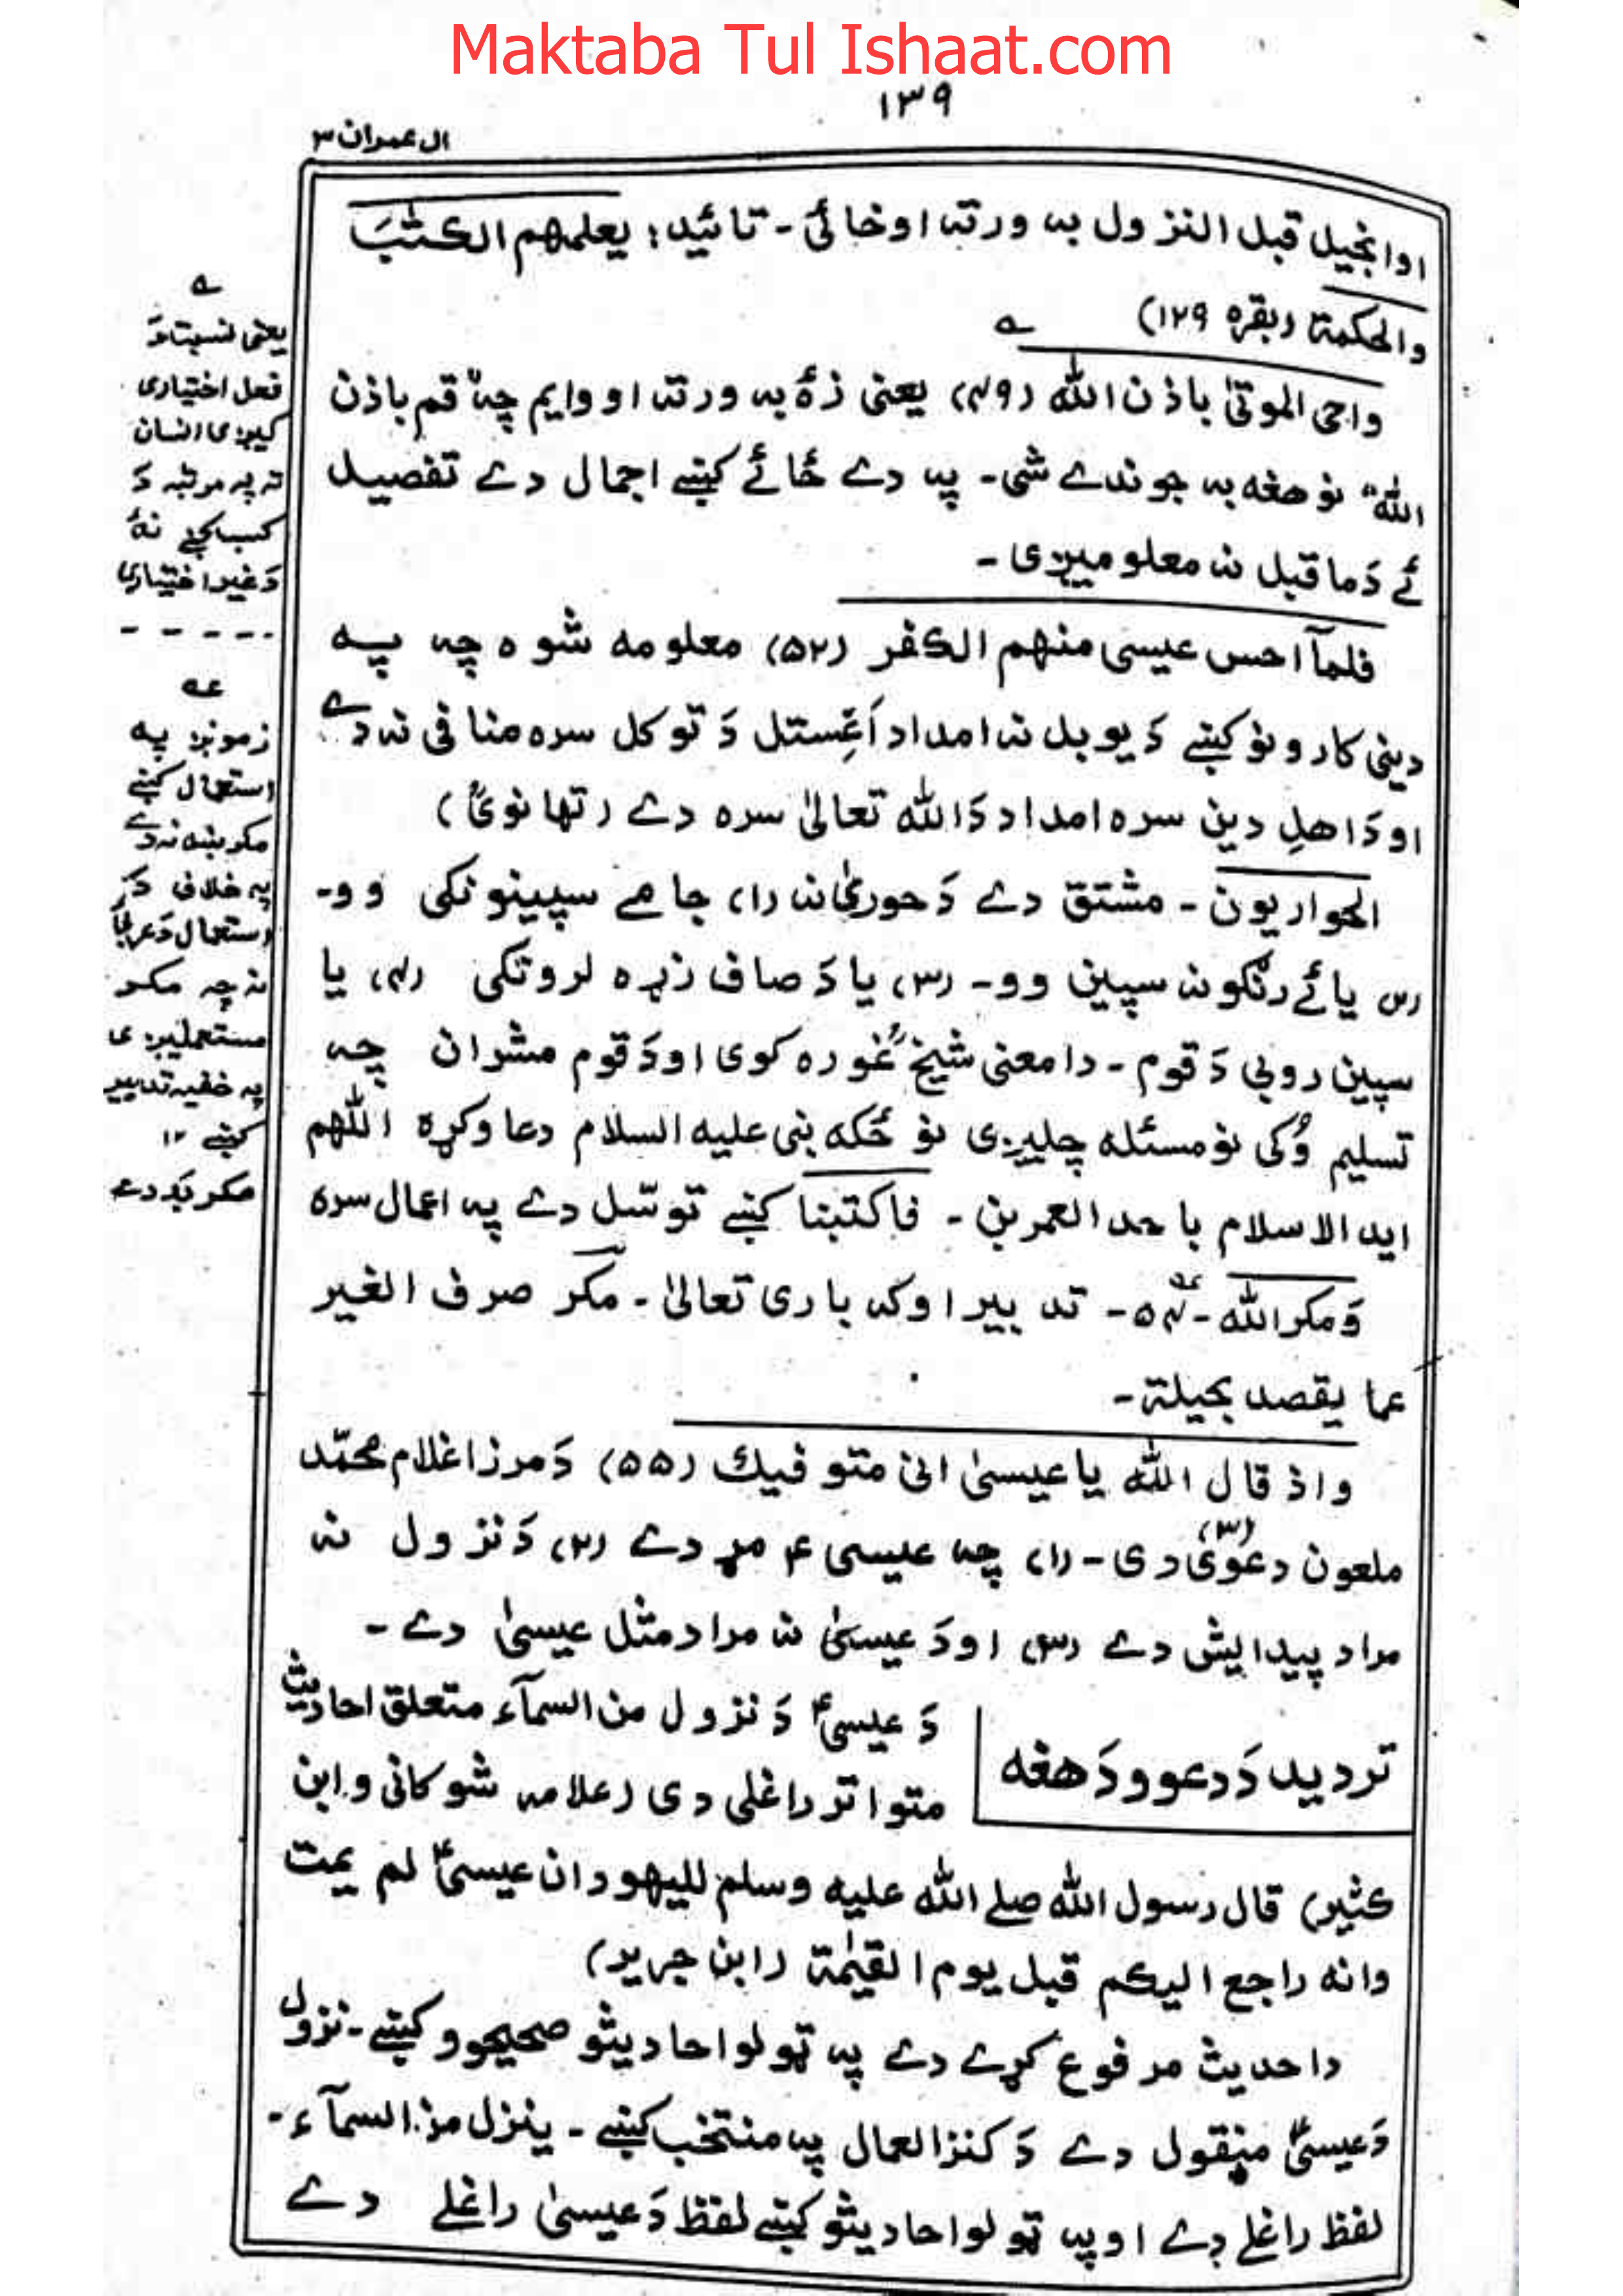 Maktaba Tul Ishaat.com
۱۳۹
ال عمران ۳
او انجیل قبل النزول به ورته اوښائی - تائید: یعلمهم الکتٰبَ
والحکمة (بقره ۱۲۹) ؎
واحی الموتیٰ باذن الله (۴۹) یعنی زهٔ به ورته او وایم چه قم باذن
الله" نو هغه به جوندے شی - په دے ځائے کښے اجمال دے تفصیل
ئے دَ ماقبل نه معلومیږی -
فلمآ احس عیسی منهم الکفر (۵۲) معلومه شوه چه په
دینی کارونو کښے دَ یو بل نه امداد اَغِستل دَ توکل سره منافی نه دے
او دَ اهلِ دین سره امداد دَ الله تعالیٰ سره دے (تهانویؒ)
الحواریون - مشتق دے دَ حوریٰ نه (۱) جامے سپینونکی وو -
(۲) یا ئے رنګونه سپین وو - (۳) یا دَ صاف زړه لرونکی (۴) یا
سپین روبی دَ قوم - دا معنی شیخؒ غوره کوی او دَ قوم مشران چه
تسلیم وُکی نو مسئله چلیږی نو ځکه نبی علیه السلام دعا وکړه اللّٰهم
اید الاسلام باحد العمرین - فاکتبنا کښے توسّل دے په اعمال سره
وَمکر الله - ۵۴ - تدبیر اوکه باری تعالیٰ - مکر صرف الغیر
عما یقصد بحیلة -
واذ قال الله یا عیسیٰ انی متوفیك (۵۵) دَ مرزا غلام محمّد
ملعون (۳) دعوٰی دی - (۱) چه عیسی ؑ مړ دے (۲) دَ نزول نه
مراد پیدایش دے (۳) او دَ عیسیٰ نه مراد مثل عیسیٰ دے -
تردید دَ دعوو دَ هغه
دَ عیسیؑ دَ نزول من السمآء متعلق احادیث
متواتر راغلی دی (علامه شوکانی و ابن
کثیر) قال رسول الله صلے الله علیه وسلم للیهود ان عیسیؑ لم یمت
وانه راجع الیکم قبل یوم القیٰمة (ابن جریر)
دا حدیث مرفوع کړے دے په ټولو احادیثو صحیحوو کښے - نزول
دَ عیسیؑ منقول دے دَ کنز العمال په منتخب کښے - ینزل من السمآء -
لفظ راغلے دے او په ټولو احادیثو کښے لفظ دَ عیسیٰ راغلے دے
؎
یعنی نسبت دَ
فعل اختیاری
کیږی انسان
ته په مرتبه دَ
کسب کښے نهٔ
دَ غیر اختیاری
- - - - -
زمونږ په
استعمال کښے
مکر ښه نه دے
په خلاف دَ
استعمال دَ عربیٔ
نه چه مکر
مستعملیږی
په خفیه تدبیر
کښے ۱۲
مکر بَد دے